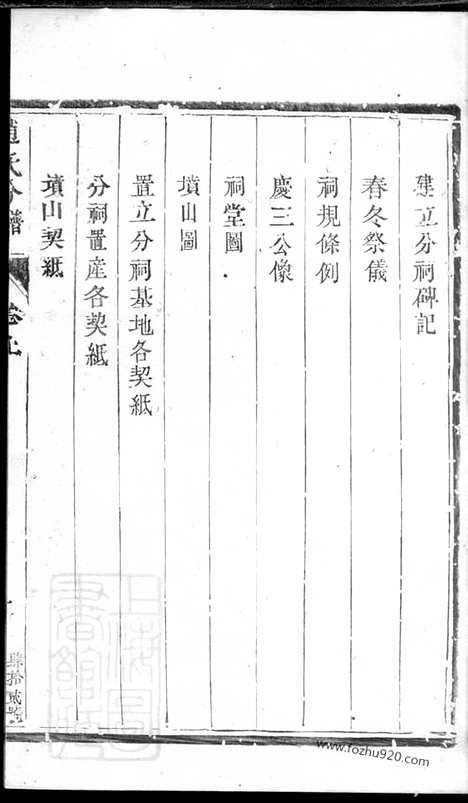 建立分祠碑記
春冬祭儀
祠規條例
慶三公像
祠堂圖
墳山圖
置立分祠基地各契紙
分祠置産各契紙
墳山契紙
氏分譜
卷上
肆拾貳號
上海圖書館藏
www.fozhu920.com